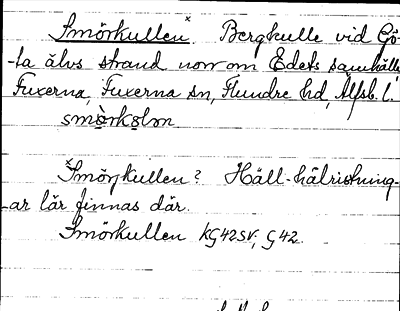 Smörkullen.ˣ Bergkulle vid Gö-
-ta älvs strand norr om Edets samhälle,
Fuxerna, Fuxerna sn, Flundre hd, Älfsb. l.
smörkolən
Smörkullen? Häll-hälristning-
-ar lär finnas där.
Smörkullen KG42SV, G42.